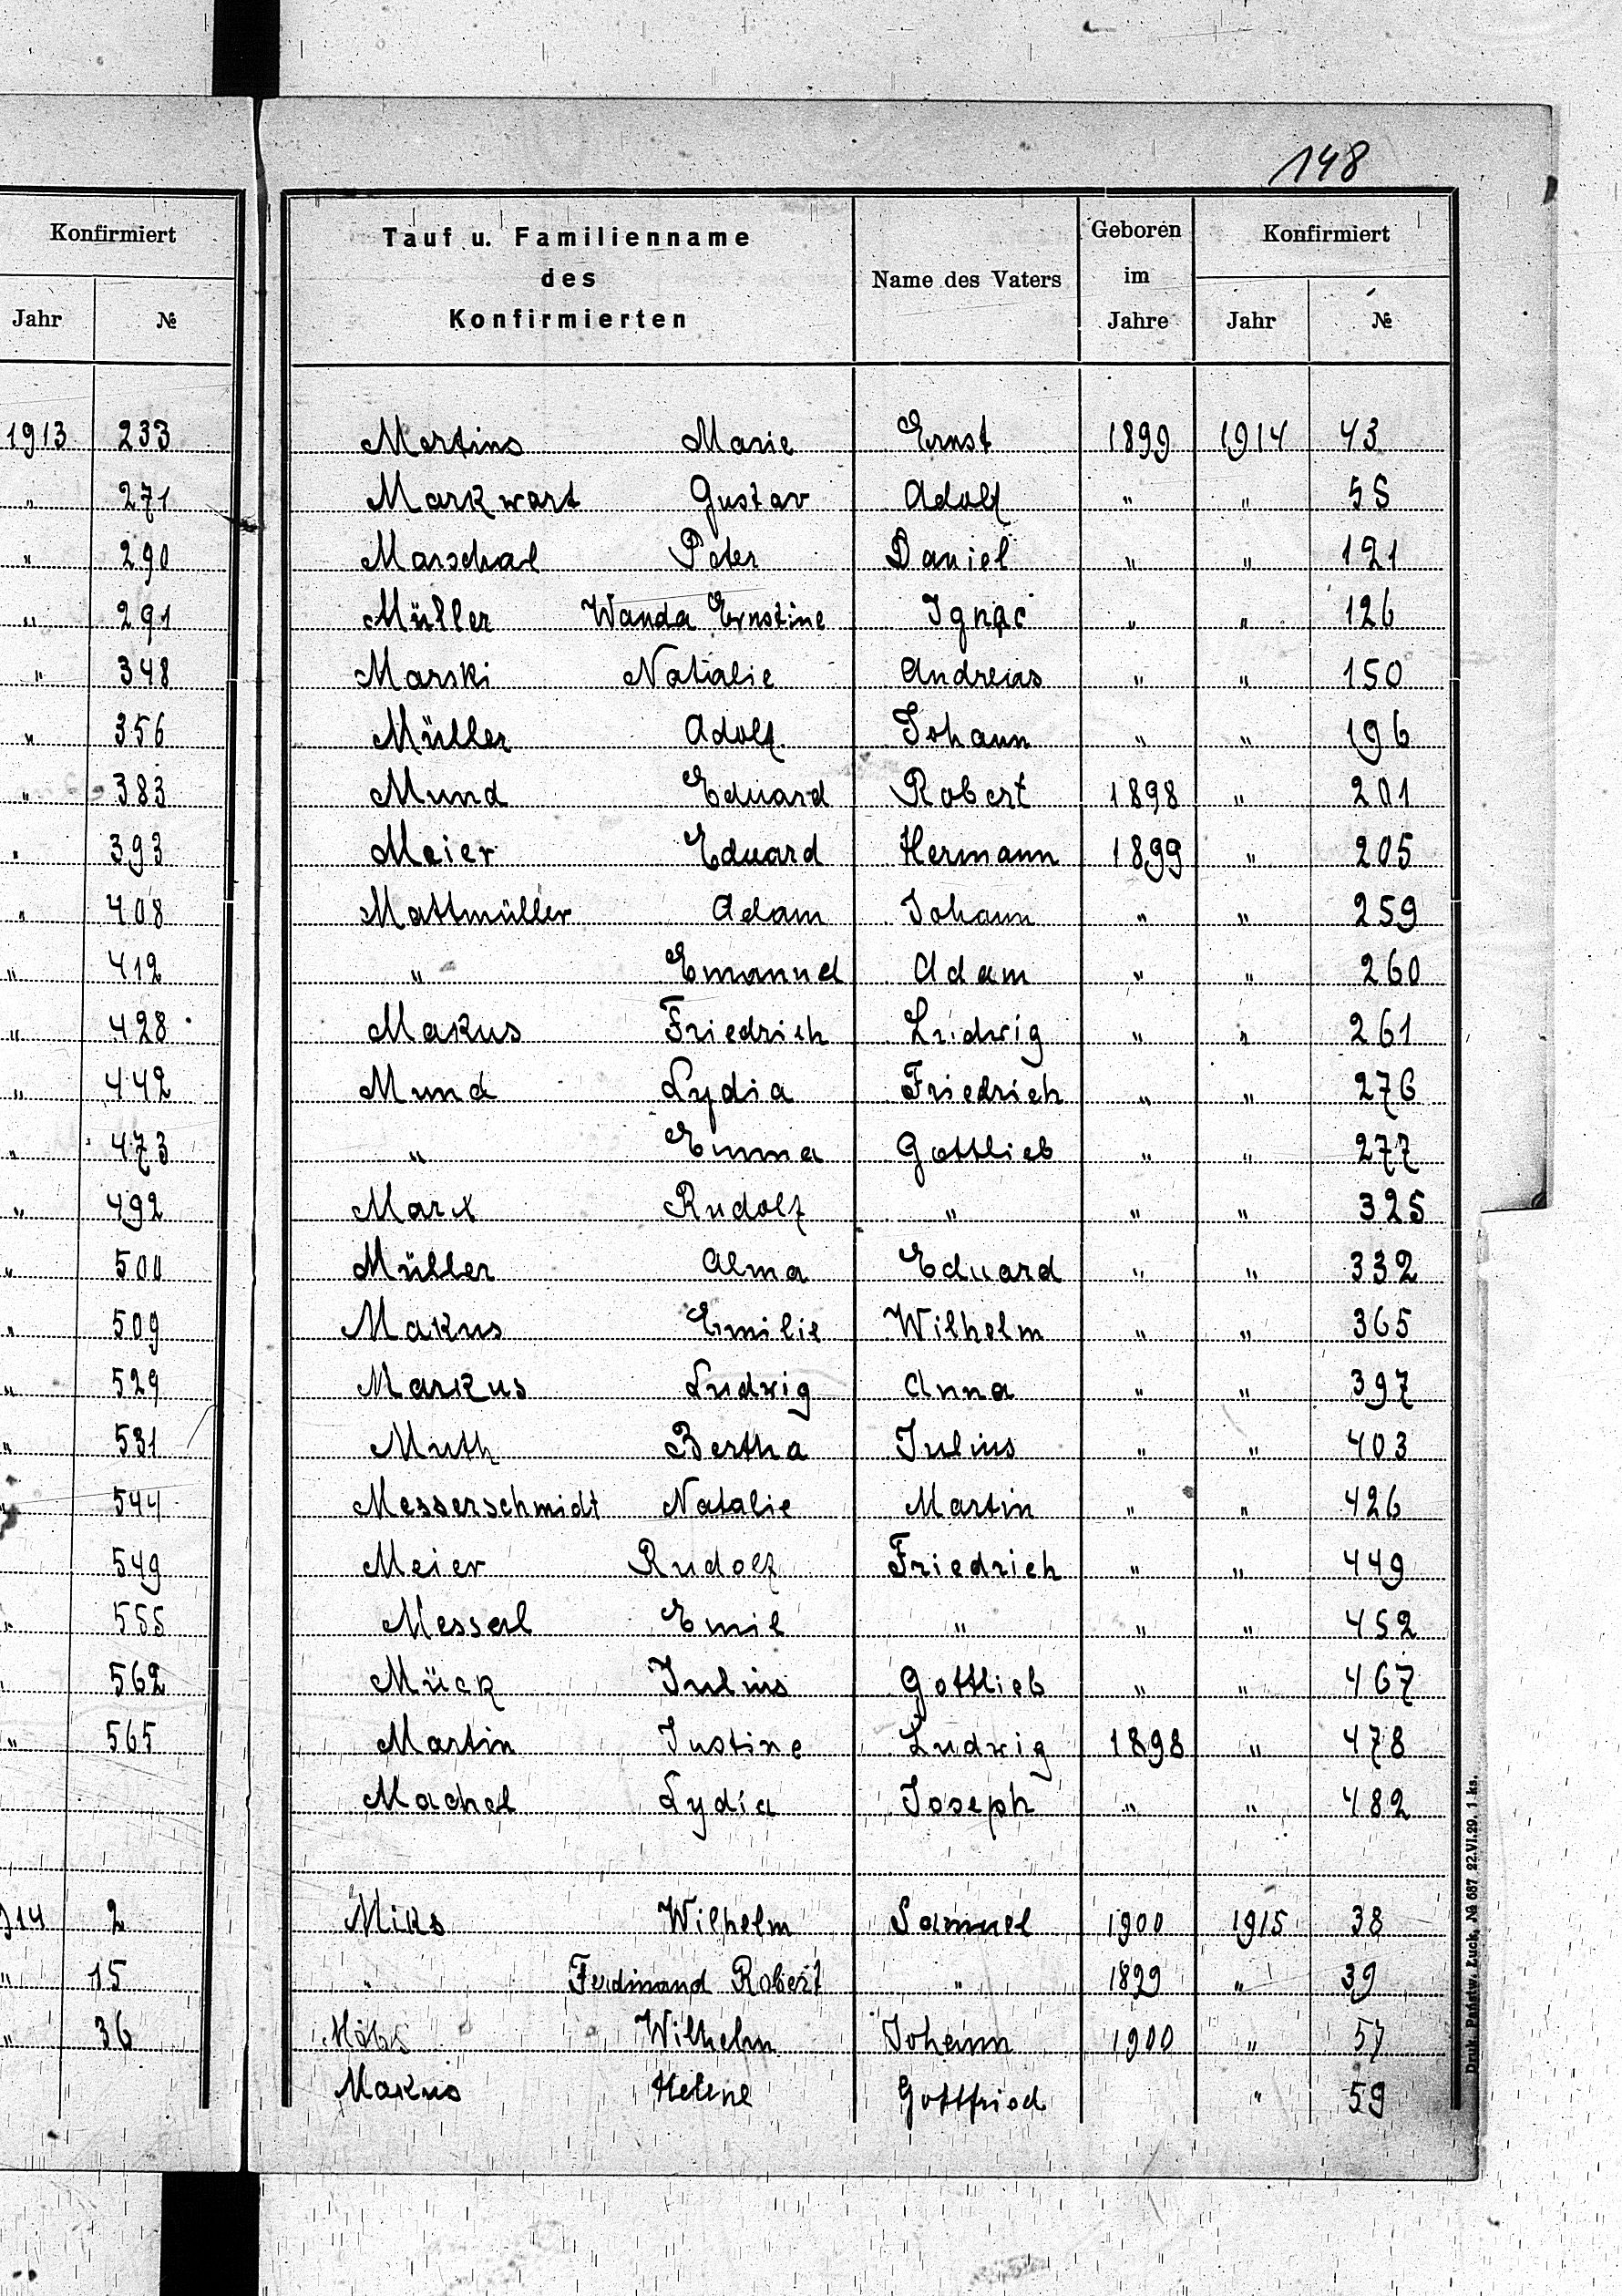 148
Konfirmiert
Jahr №
1913 233
" 271
" 290
" 291
" 348
" 356
" 383
" 393
" 408
" 412
" 428
" 442
" 473
" 492
" 500
" 509
" 529
" 531
" 544
549
" 555
562
" 565
914 2
" 15
" 36
Tauf u. Familienname des Konfirmierten Name des Vaters Geboren im Jahre Konfirmiert Jahr №
Mertins Marie Ernst 1899 1914 43
Markwart Gustav Adolf " " 55
Marschal Peter Daniel " " 121
Müller Wanda Ernstine Ignac " " 126
Marski Natalie Andreas " " 150
Müller Adolf Johann " " 196
Mund Eduard Robert 1898 " 201
Meier Eduard Hermann 1899 " 205
Mattmüller Adam Johann " " 259
" Emanuel Adam " " 260
Makus Friedrich Ludwig " " 261
Mund Lydia Friedrich " " 276
" Emma Gottlieb " " 277
Marx Rudolf " " " 325
Müller Alma Eduard " " 332
Makus Emilie Wilhelm " " 365
Markus Ludwig Anna " " 397
Muth Bertha Julius " " 403
Messerschmidt Natalie Martin " " 426
Meier Rudolf Friedrich " " 449
Messal Emil " " " 452
Mück Julius Gottlieb " " 467
Martin Justine Ludwig 1898 " 478
Machel Lydia Joseph " " 482
Miks Wilhelm Samuel 1900 1915 38
" Ferdinand Robert " 1899 " 39
Wilhelm Johann 1900 " 57
Makus Helene Gottfried " 59
Druk. Państw. Łuck, № 687 22.VI.29. 1 ks.